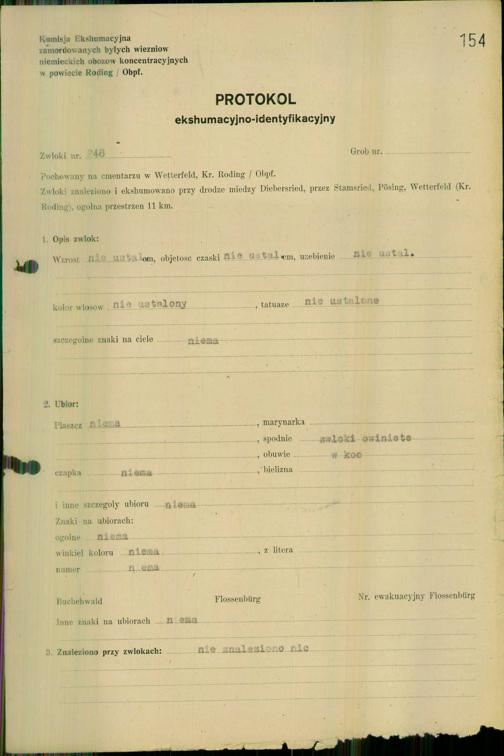 154
Komisja Ekshumacyjna
zamordowanych byłych wiezniow
niemieckich obozow koncentracyjnych
w powiecie Roding / Obpf.
PROTOKOL
ekshumacyjno-identyfikacyjny
Zwloki nr. 248 Grob nr.
Pochowany na cmentarzu w Wetterfeld, Kr. Roding / Obpf.
Zwloki znaleziono i ekshumowano przy drodze miedzy Diebersried, przez Stamsried, Pösing, Wetterfeld (Kr.
Roding), ogolna przestrzen 11 km.
1. Opis zwlok:
Wzrost nie ustal cm, objetosc czaski nie ustal. cm, uzebienie nie ustal.
kolor wlosow nie ustalony , tatuaze nie ustalone
szczegolne znaki na ciele niema
2. Ubior:
Plaszcz niema , marynarka
, spodnie zwloki owiniete
, obuwie w koc
czapka niema , bielizna
i inne szczegoly ubioru niema
Znaki na ubiorach:
ogolne niema
winkiel koloru niema , z litera
numer n ema
Buchehwald Flossenbürg Nr. ewakuacyjny Flossenbürg
Inne znaki na ubiorach n ema
3. Znaleziono przy zwlokach: nie znaleziono nic